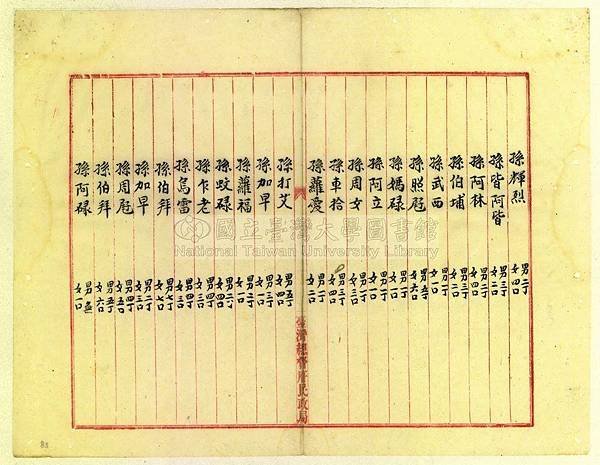 孫輝烈 男二丁 女四口
孫皆阿皆 男三丁 女二口
孫阿林 男二丁 女四口
孫伯埔 男三丁 女二口
孫武西 男二丁 女一口
孫照厖 男五丁 女六口
孫媽碌 男二丁 女一口
孫阿立 男二丁 女四口
孫周女 男三丁 女二口
孫車拾 男三丁 女四口
孫蘿愛 男一丁 女二口
臺灣總督府民政局
孫打艾 男五丁 女四口
孫加早 男三丁 女一口
孫蘿福 男二丁 女一口
孫蚊碌 男二丁 女四口
孫乍老 男四丁 女四口
孫烏雷 男四丁 女三口
孫伯拜 男七丁 女七口
孫加早 男二丁 女三口
孫周厖 男四丁 女五口
孫伯拜 男五丁 女六口
孫阿碌 男無 女一口
國立臺灣大學圖書館
National Taiwan University Library